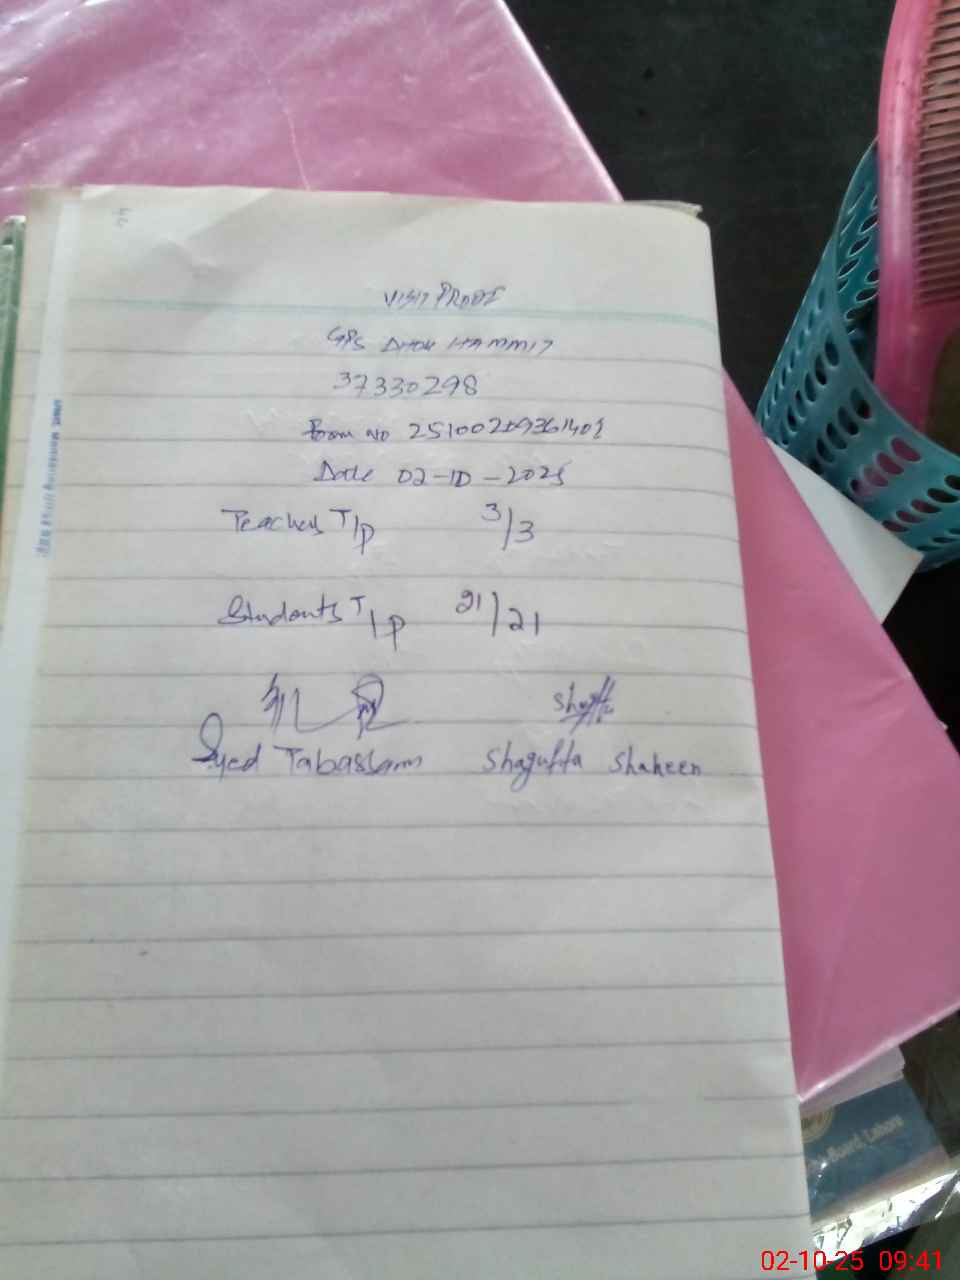 VISIT PROOF
GPS DHOK HAMMID
37330298
Form no 25100209361401
Date 02-10-2025
Teachers T/p 3/3
Students T/p 21/21
Shagufta
Syed Tabassam Shagufta Shaheen
Board, Lahore
02-10-25 09:41